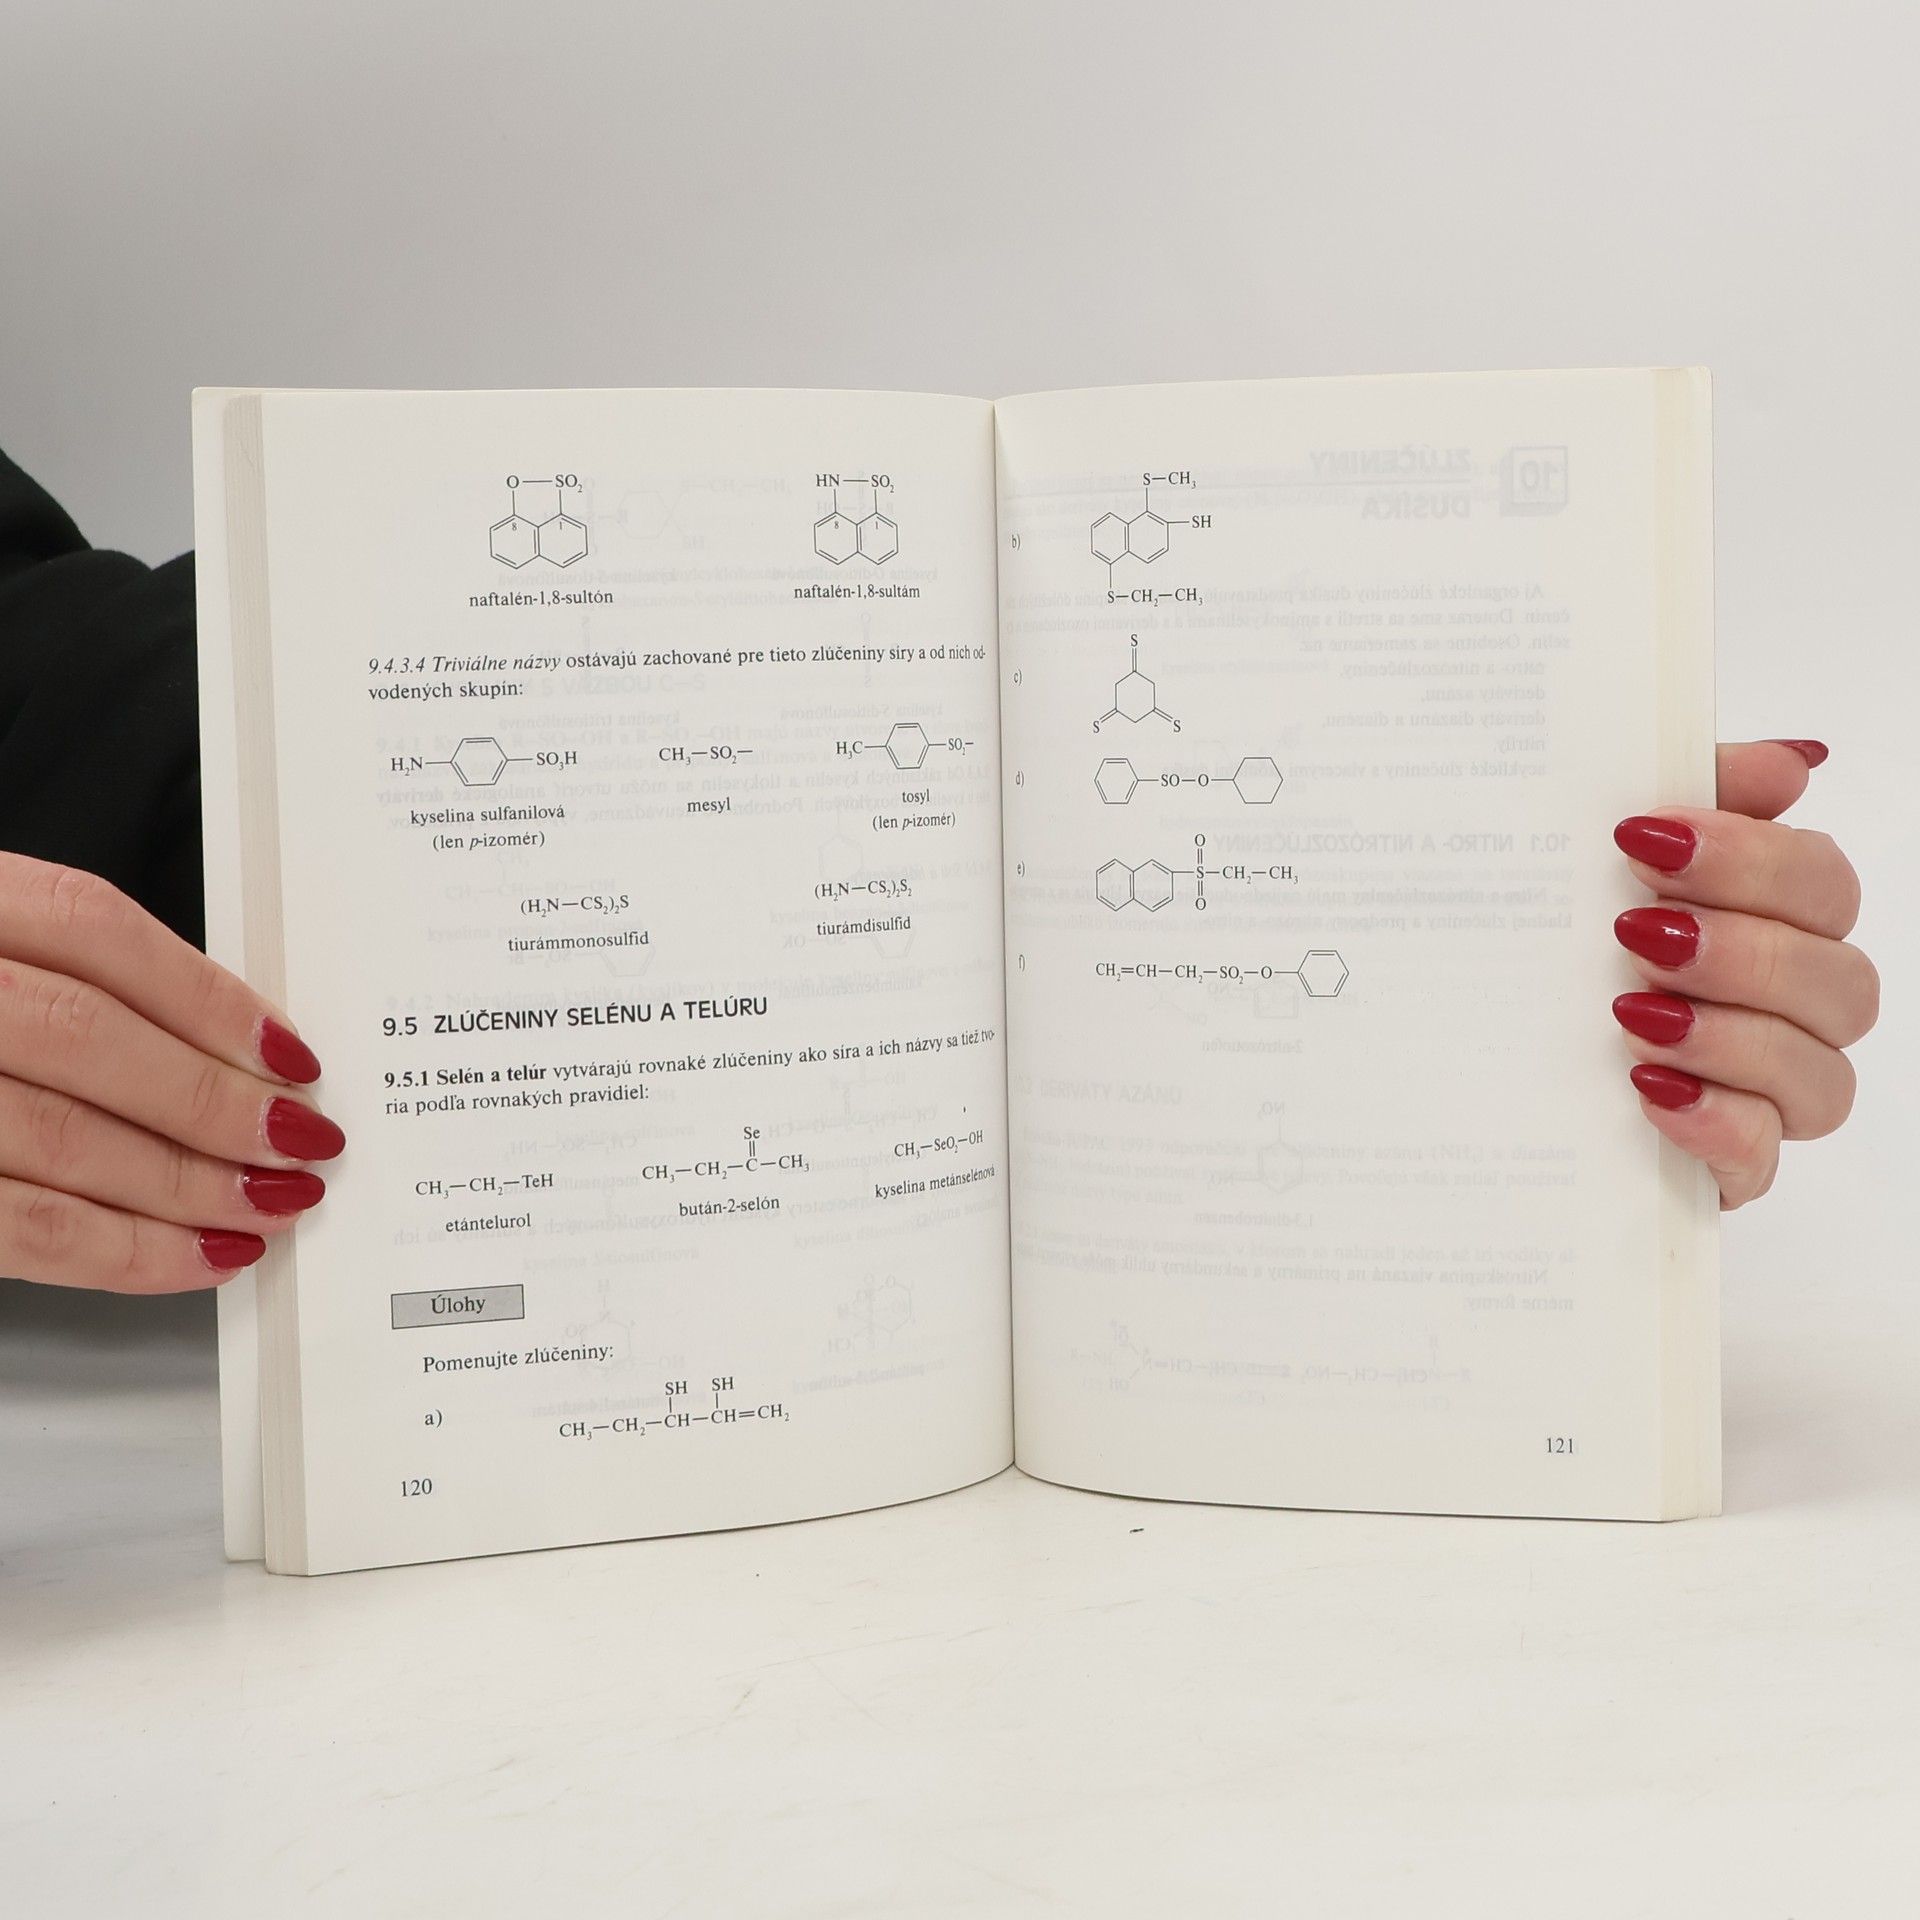 O—SO₂
8 1
naftalén-1,8-sultón
HN—SO₂
8 1
naftalén-1,8-sultám
9.4.3.4 Triviálne názvy ostávajú zachované pre tieto zlúčeniny síry a od nich od-
vodených skupín:
H₂N— —SO₃H
kyselina sulfanilová
(len p-izomér)
CH₃—SO₂—
mesyl
H₃C— —SO₂—
tosyl
(len p-izomér)
(H₂N—CS₂)₂S
tiurámmonosulfid
(H₂N—CS₂)₂S₂
tiurámdisulfid
9.5 ZLÚČENINY SELÉNU A TELÚRU
9.5.1 Selén a telúr vytvárajú rovnaké zlúčeniny ako síra a ich názvy sa tiež tvo-
ria podľa rovnakých pravidiel:
CH₃—CH₂—TeH
etántelurol
Se
CH₃—CH₂—C—CH₃
bután-2-selón
CH₃—SeO₂—OH
kyselina metánselénová
Úlohy
Pomenujte zlúčeniny:
SH SH
a) CH₃—CH₂—CH—CH=CH₂
120
S—CH₃
SH
b)
S—CH₂—CH₃
S
c)
S S
d) —SO—O—
O
e) —S—CH₂—CH₃
O
f) CH₂=CH—CH₂—SO₂—O—
121